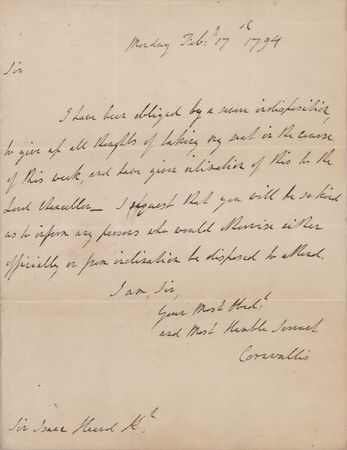 Monday Feb:y 17th 1794
Sir
I have been obliged by a severe indisposition,
to give up all thoughts of taking my seat in the course
of this week, and have given intimation of this to the
Lord Chancellor_ I request that you will be so kind
as to inform any persons who would otherwise either
officially or from inclination be disposed to attend.
I am, Sir,
Your Most Obed.t
and Most Humble Servant
Cornwallis
Sir Isaac Heard K.t